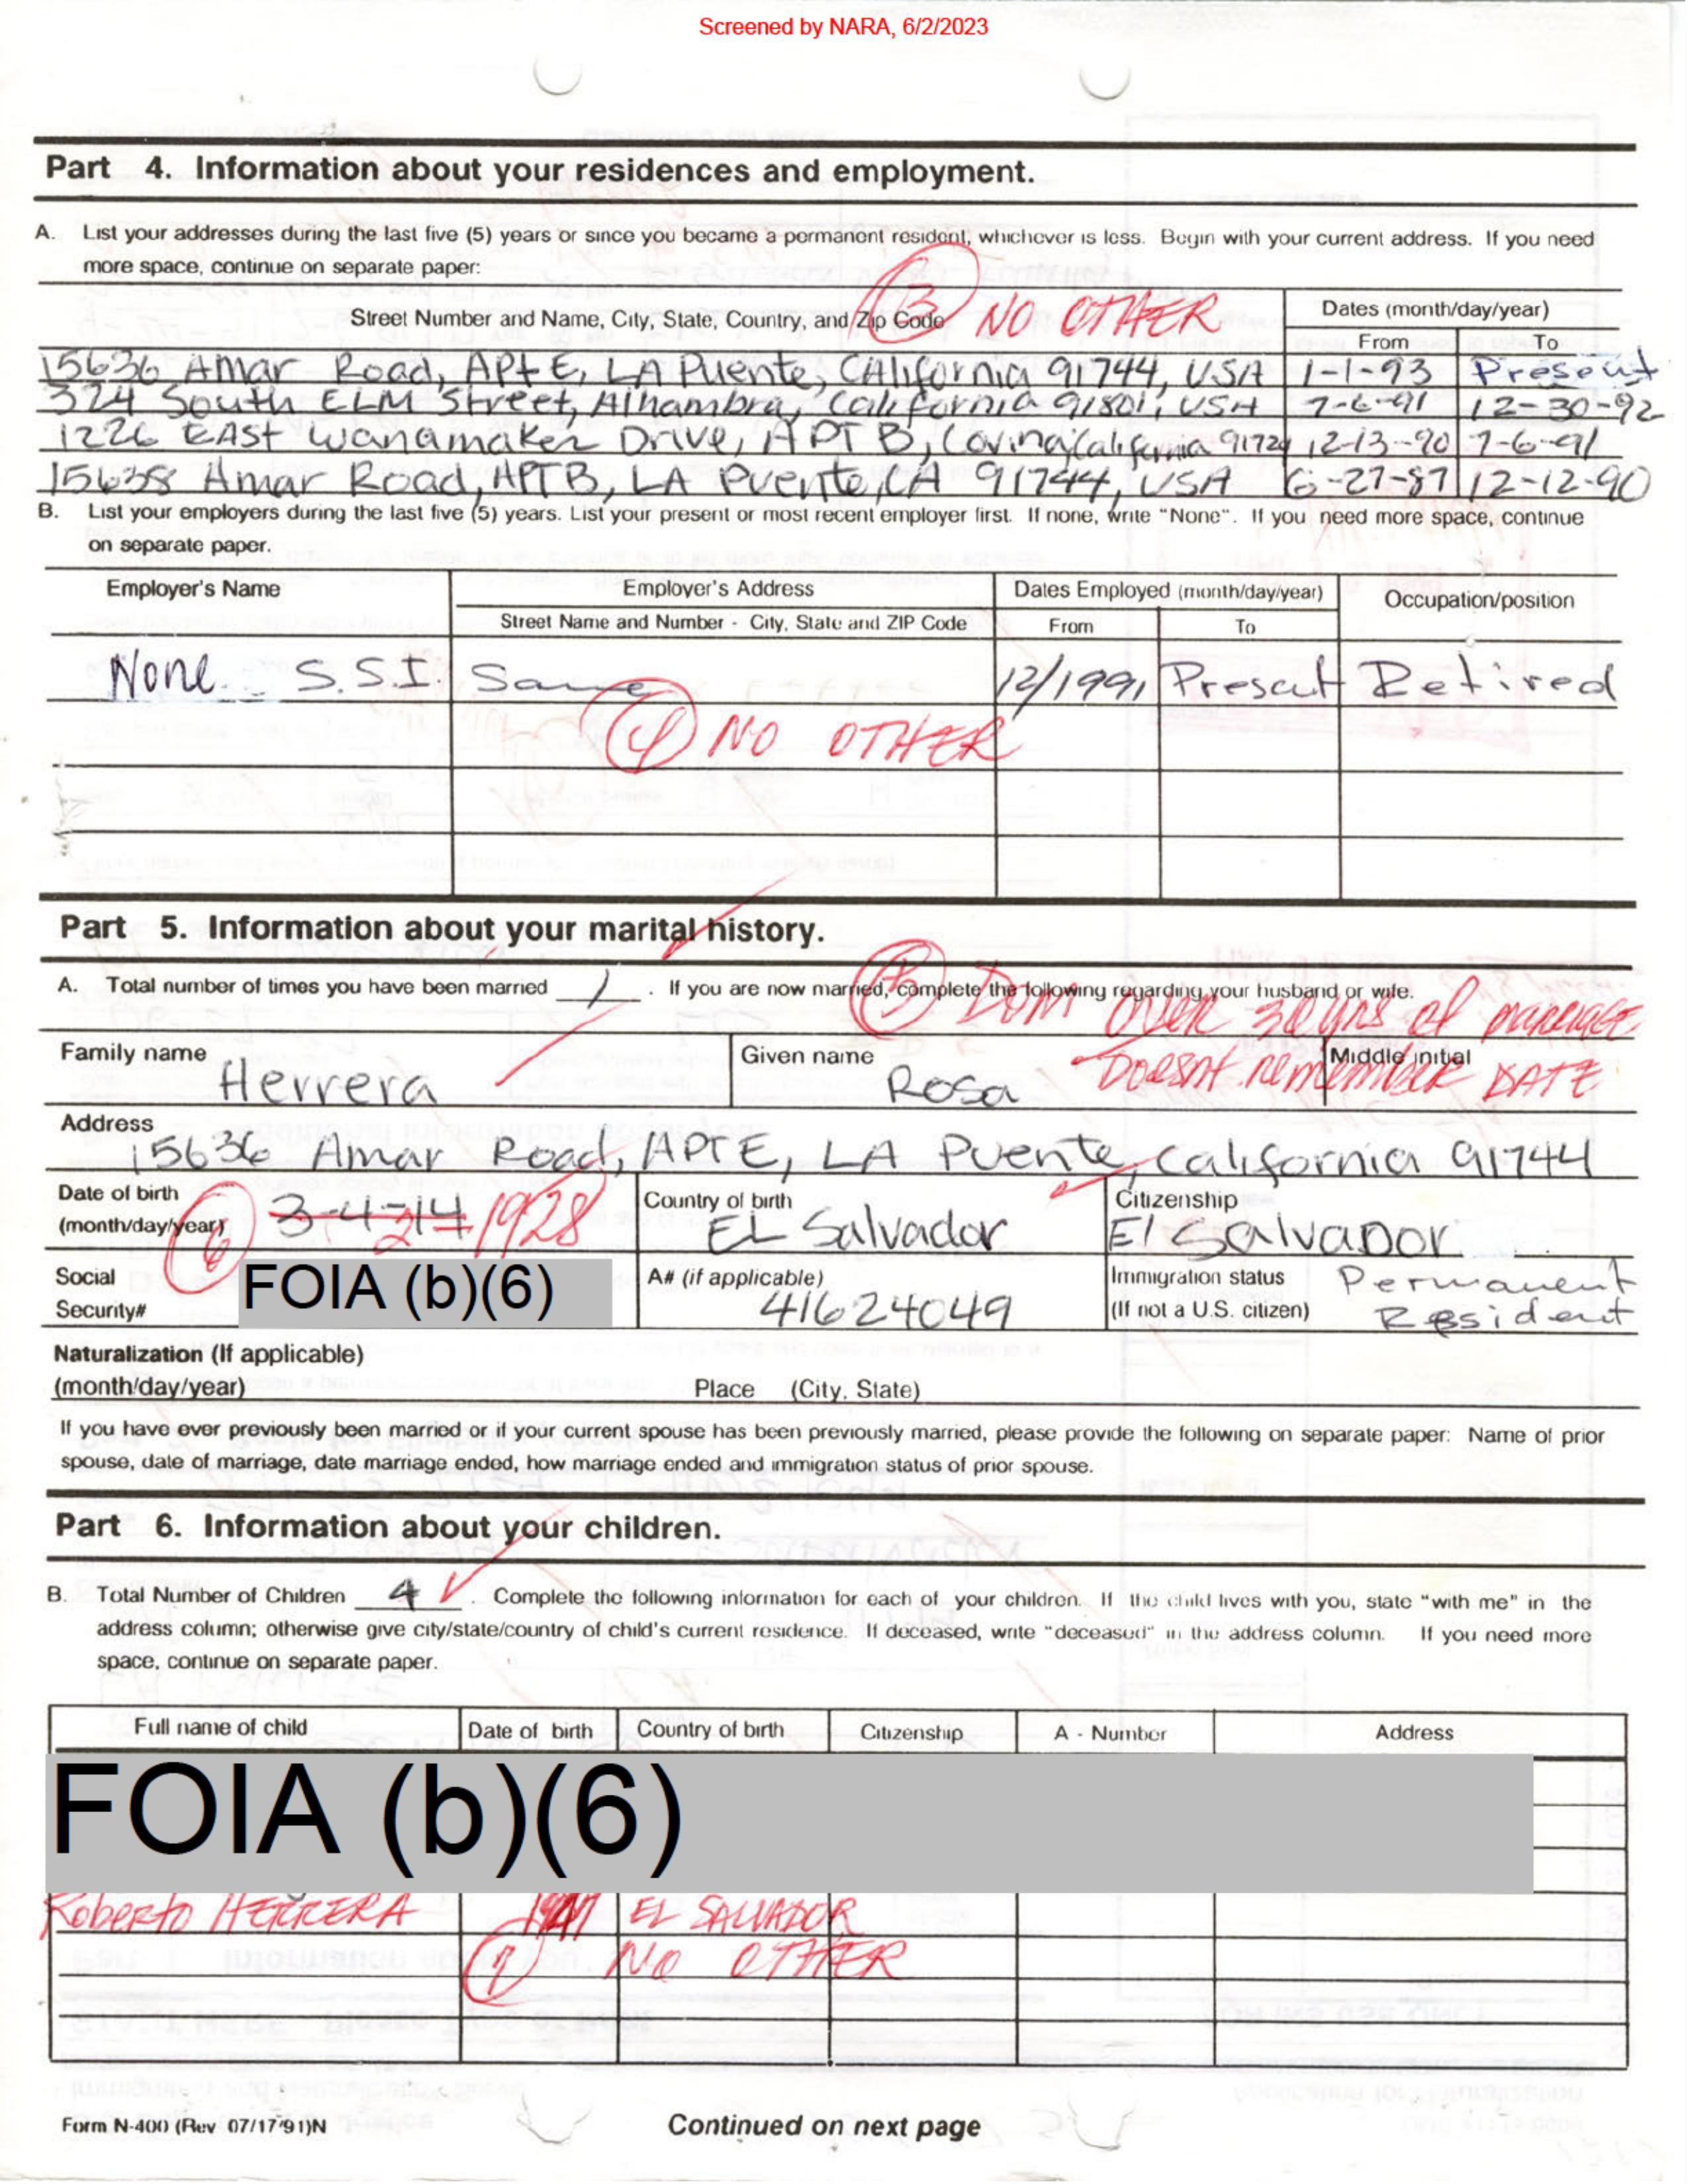 Screened by NARA, 6/2/2023
Part 4. Information about your residences and employment.
A. List your addresses during the last five (5) years or since you became a permanent resident, whichever is less. Begin with your current address. If you need
more space, continue on separate paper:
Street Number and Name, City, State, Country, and Zip Code
3 NO OTHER
Dates (month/day/year)
From To
15636 Amar Road, APt E, LA Puente, CAlifornia 91744, USA 1-1-93 Present
324 South ELM Street, Alhambra, California 91801, USA 7-6-91 12-30-92
1226 EAST Wanamaker Drive, APT B, Covina, California 91724 12-13-90 7-6-91
15638 Amar Road, APT B, LA Puente, CA 91744, USA 6-27-87 12-12-90
B. List your employers during the last five (5) years. List your present or most recent employer first. If none, write "None". If you need more space, continue
on separate paper.
Employer's Name Employer's Address Dates Employed (month/day/year) Occupation/position
Street Name and Number - City, State and ZIP Code From To
None S.S.I. Same 12/1991 Present Retired
4 NO OTHER
Part 5. Information about your marital history.
A. Total number of times you have been married 1. If you are now married, complete the following regarding your husband or wife.
DOM over 30 yrs of marriage
Family name Herrera Given name Rosa Middle initial
- Doesnt remember DATE
Address
15636 Amar Road, APT E, LA Puente, California 91744
Date of birth
(month/day/year) 6 3-4-14 1928
Country of birth EL Salvador
Citizenship El SALVADOR
Social
Security# FOIA (b)(6)
A# (if applicable) 41624049
Immigration status
(If not a U.S. citizen) Permanent
Resident
Naturalization (If applicable)
(month/day/year) Place (City, State)
If you have ever previously been married or if your current spouse has been previously married, please provide the following on separate paper: Name of prior
spouse, date of marriage, date marriage ended, how marriage ended and immigration status of prior spouse.
Part 6. Information about your children.
B. Total Number of Children 4. Complete the following information for each of your children. If the child lives with you, state "with me" in the
address column; otherwise give city/state/country of child's current residence. If deceased, write "deceased" in the address column. If you need more
space, continue on separate paper.
Full name of child Date of birth Country of birth Citizenship A - Number Address
FOIA (b)(6)
Roberto HERRERA EL SALVADOR
7 NO OTHER
Form N-400 (Rev 07/17/91)N
Continued on next page